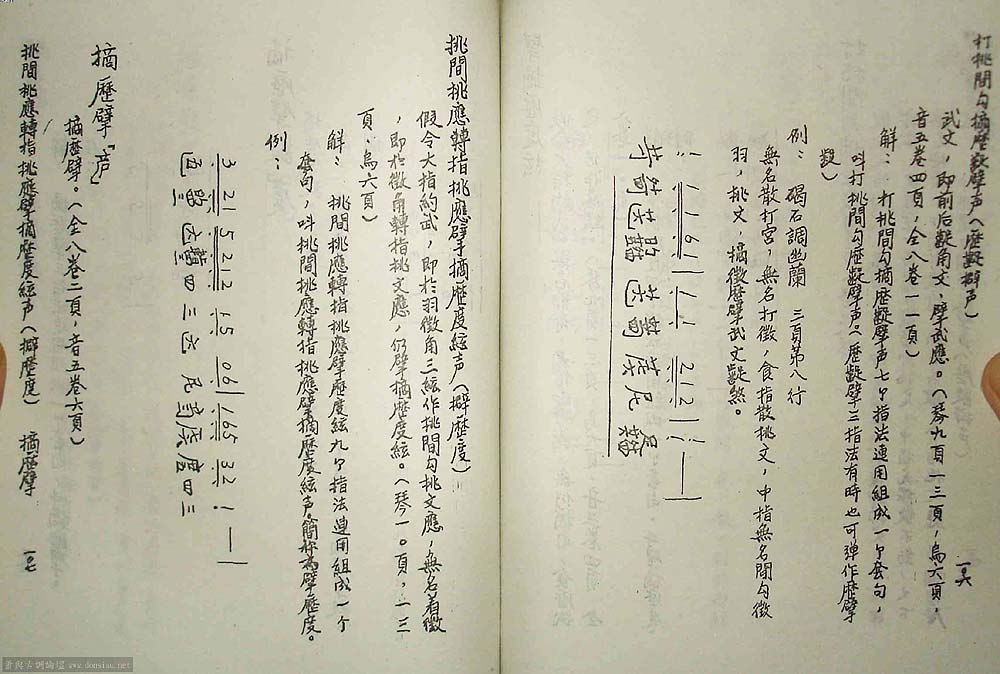 打挑間勾摘歷㩓擘声（歷㩓擗声）
武文，即前后㩓角文，擘武應。（琴九頁一三頁，烏六頁，
音五卷四頁，全八卷一一頁）
解：打挑間勾摘歷㩓擘声七个指法連用組成一个套句，
叫打挑間勾歷㩓擘声。（歷㩓擘三指法有時也可彈作歷擘
㩓）
例：碣石調幽蘭 三頁第八行
無名散打宮，無名打徵，食指散挑文，中指無名間勾徵
羽，挑文，摘徵歷擘武文㩓然。
一〇六
挑間挑應轉指挑應擘摘歷度絃声（擗歷度）
假令大指約武，即於羽徵角三絃作挑間勾挑文應，無名着徵
，即於徵角轉指挑文應，仍擘摘歷度絃。（琴一〇頁，一三
頁，烏六頁）
解：挑間挑應轉指挑應擘歷度絃九个指法連用組成一个
套句，叫挑間挑應轉指挑應擘摘歷度絃声，簡称為擘歷度。
例：
3 21 5 212 1 5 061 165 32 1 —
摘歷擘「声」
摘歷擘。（全八卷二頁，音五卷六頁）
挑間挑應轉指挑應擘摘歷度絃声（擗歷度） 摘歷擘
一〇七